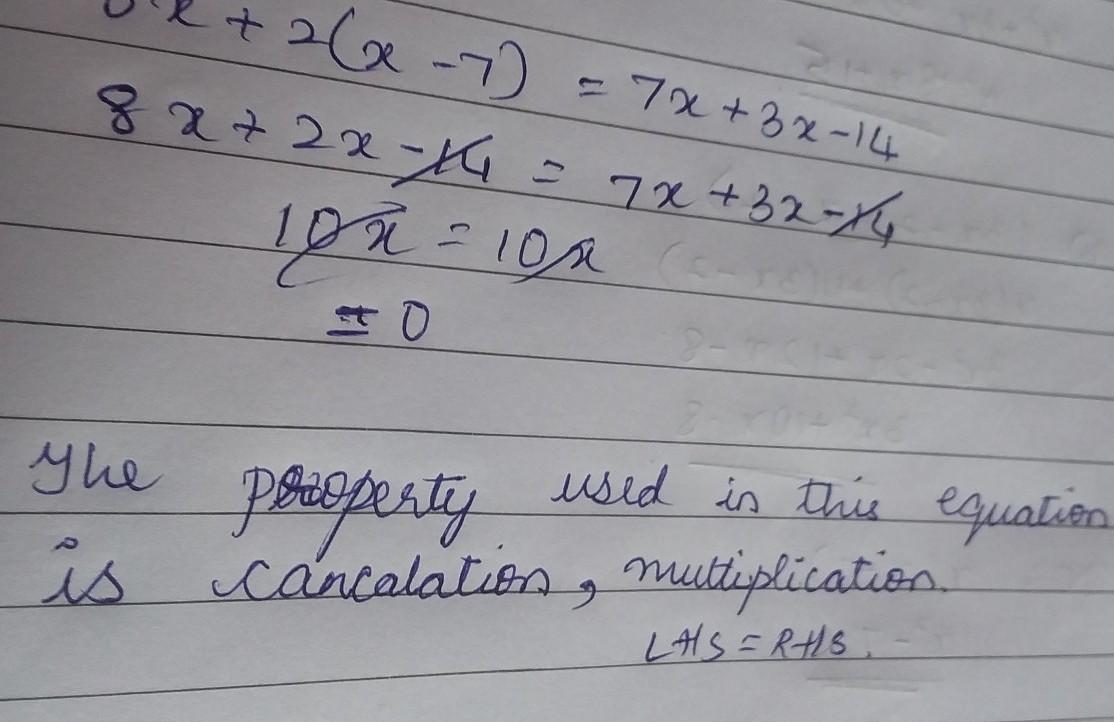 x + 2(x - 7) = 7x + 3x - 14
8x + 2x - 14 = 7x + 3x - 14
10x = 10x
= 0
The property used in this equation
is cancalation, multiplication.
LHS = RHS.